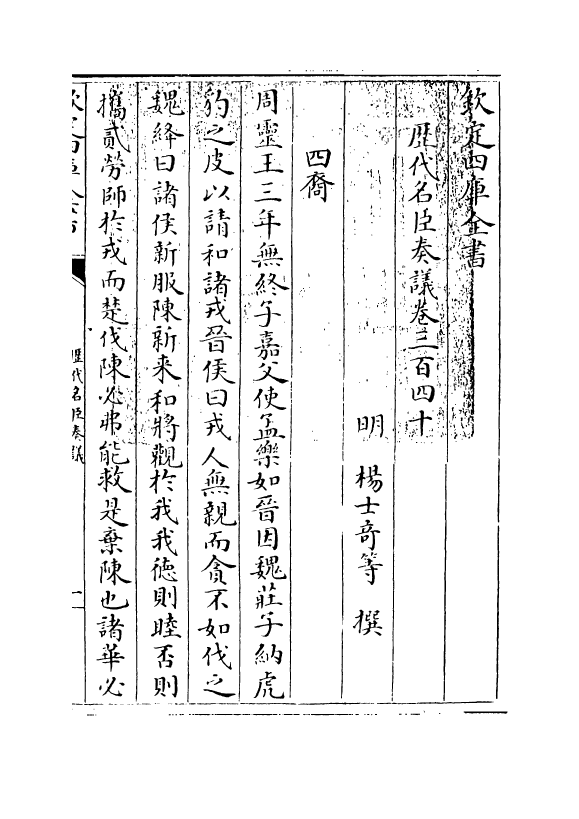 欽定四庫全書
歴代名臣奏議卷三百四十
明 楊士奇等 撰
四裔
周靈王三年無終子嘉父使孟樂如晉因魏莊子納虎
豹之皮以請和諸戎晉侯曰戎人無親而貪不如伐之
魏絳曰諸侯新服陳新來和將觀於我我徳則睦否則
攜貳勞師於戎而楚伐陳必弗能救是棄陳也諸華必
歴代名臣奏議